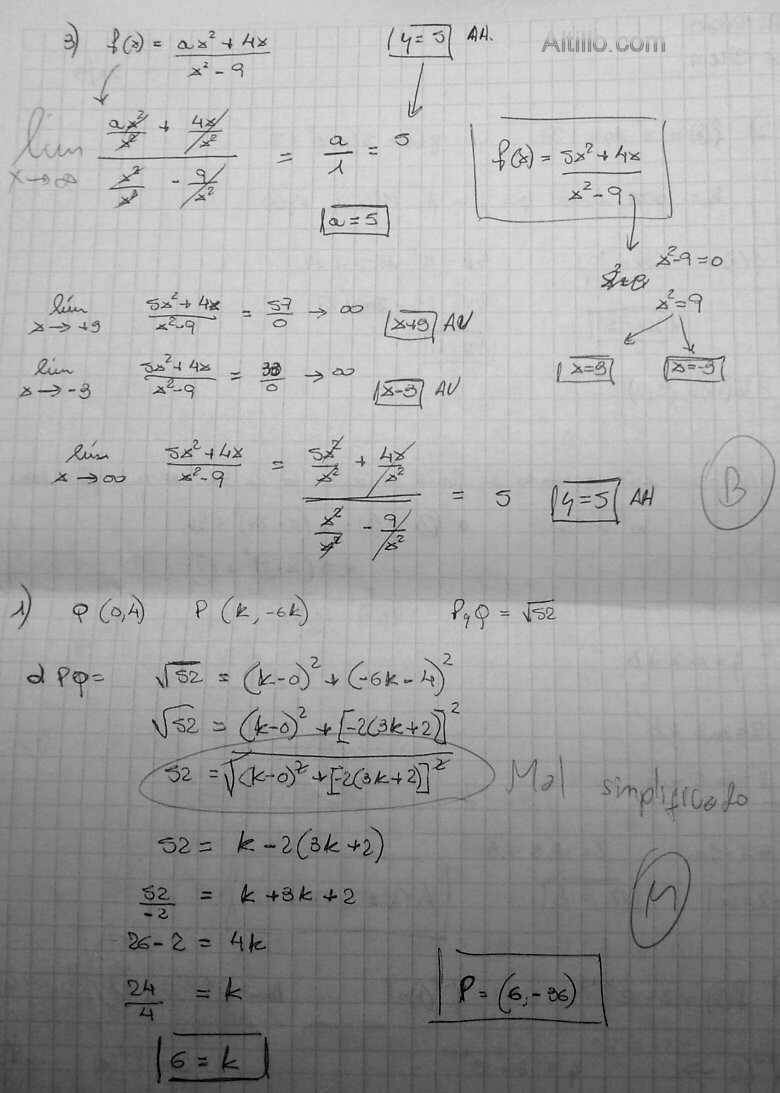 3) f(x) = ax² + 4x / x² - 9    y = 5 AH.    Altillo.com
lím x→∞ (ax²/x² + 4x/x²) / (x²/x² - 9/x²) = a/1 = 5    f(x) = 5x² + 4x / x² - 9
a = 5
x²-9=0
x²=9
x=3    x=-3
lím x→+3 5x² + 4x / x²-9 = 57/0 → ∞    x+3 AV
lím x→-3 5x² + 4x / x²-9 = 33/0 → ∞    x-3 AV
lím x→∞ 5x² + 4x / x²-9 = (5x²/x² + 4x/x²) / (x²/x² - 9/x²) = 5    y = 5 AH    B
1) Q (0,4)    P (k, -6k)    P,Q = √52
d PQ = √52 = (k-0)² + (-6k-4)²
√52 = (k-0)² + [-2(3k+2)]²
52 = √(k-0)² + [-2(3k+2)]²    Mal simplificado
52 = k-2(3k+2)
52/-2 = k+3k+2    M
26-2 = 4k
24/4 = k    P = (6,-36)
6 = k